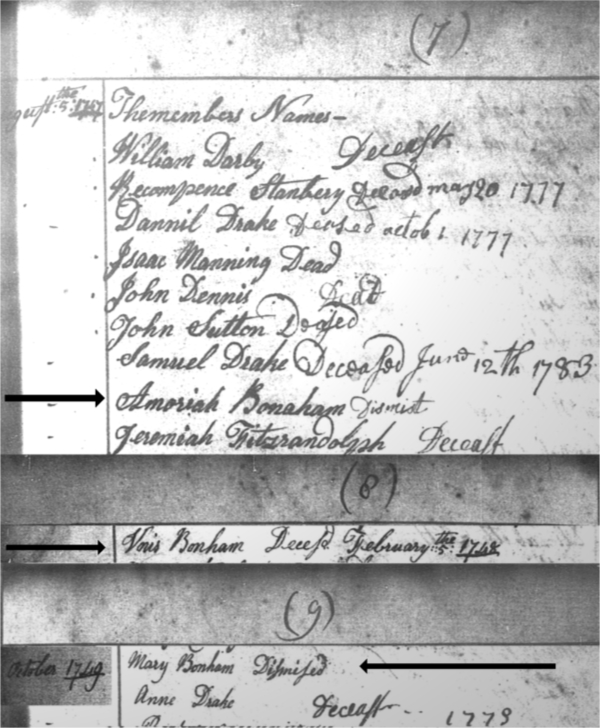 (7)
the 5 1747
Themembers Names—
William Darby Deceast
Recompence Stanbery Deceasd may 20 1777
Dannil Drake deased octob 1 1777
Isaac Manning Dead
John Dennis Dead
John Sutton Deased
Samuel Drake Deceased June 12th 1783
Amoriah Bonaham Dismist
Jeremiah Fitzrandolph Deceast
(8)
Bonham Decesd February the 5 1748
(9)
October 1749 Mary Bonham Dismised
Anne Drake Deceast 1773